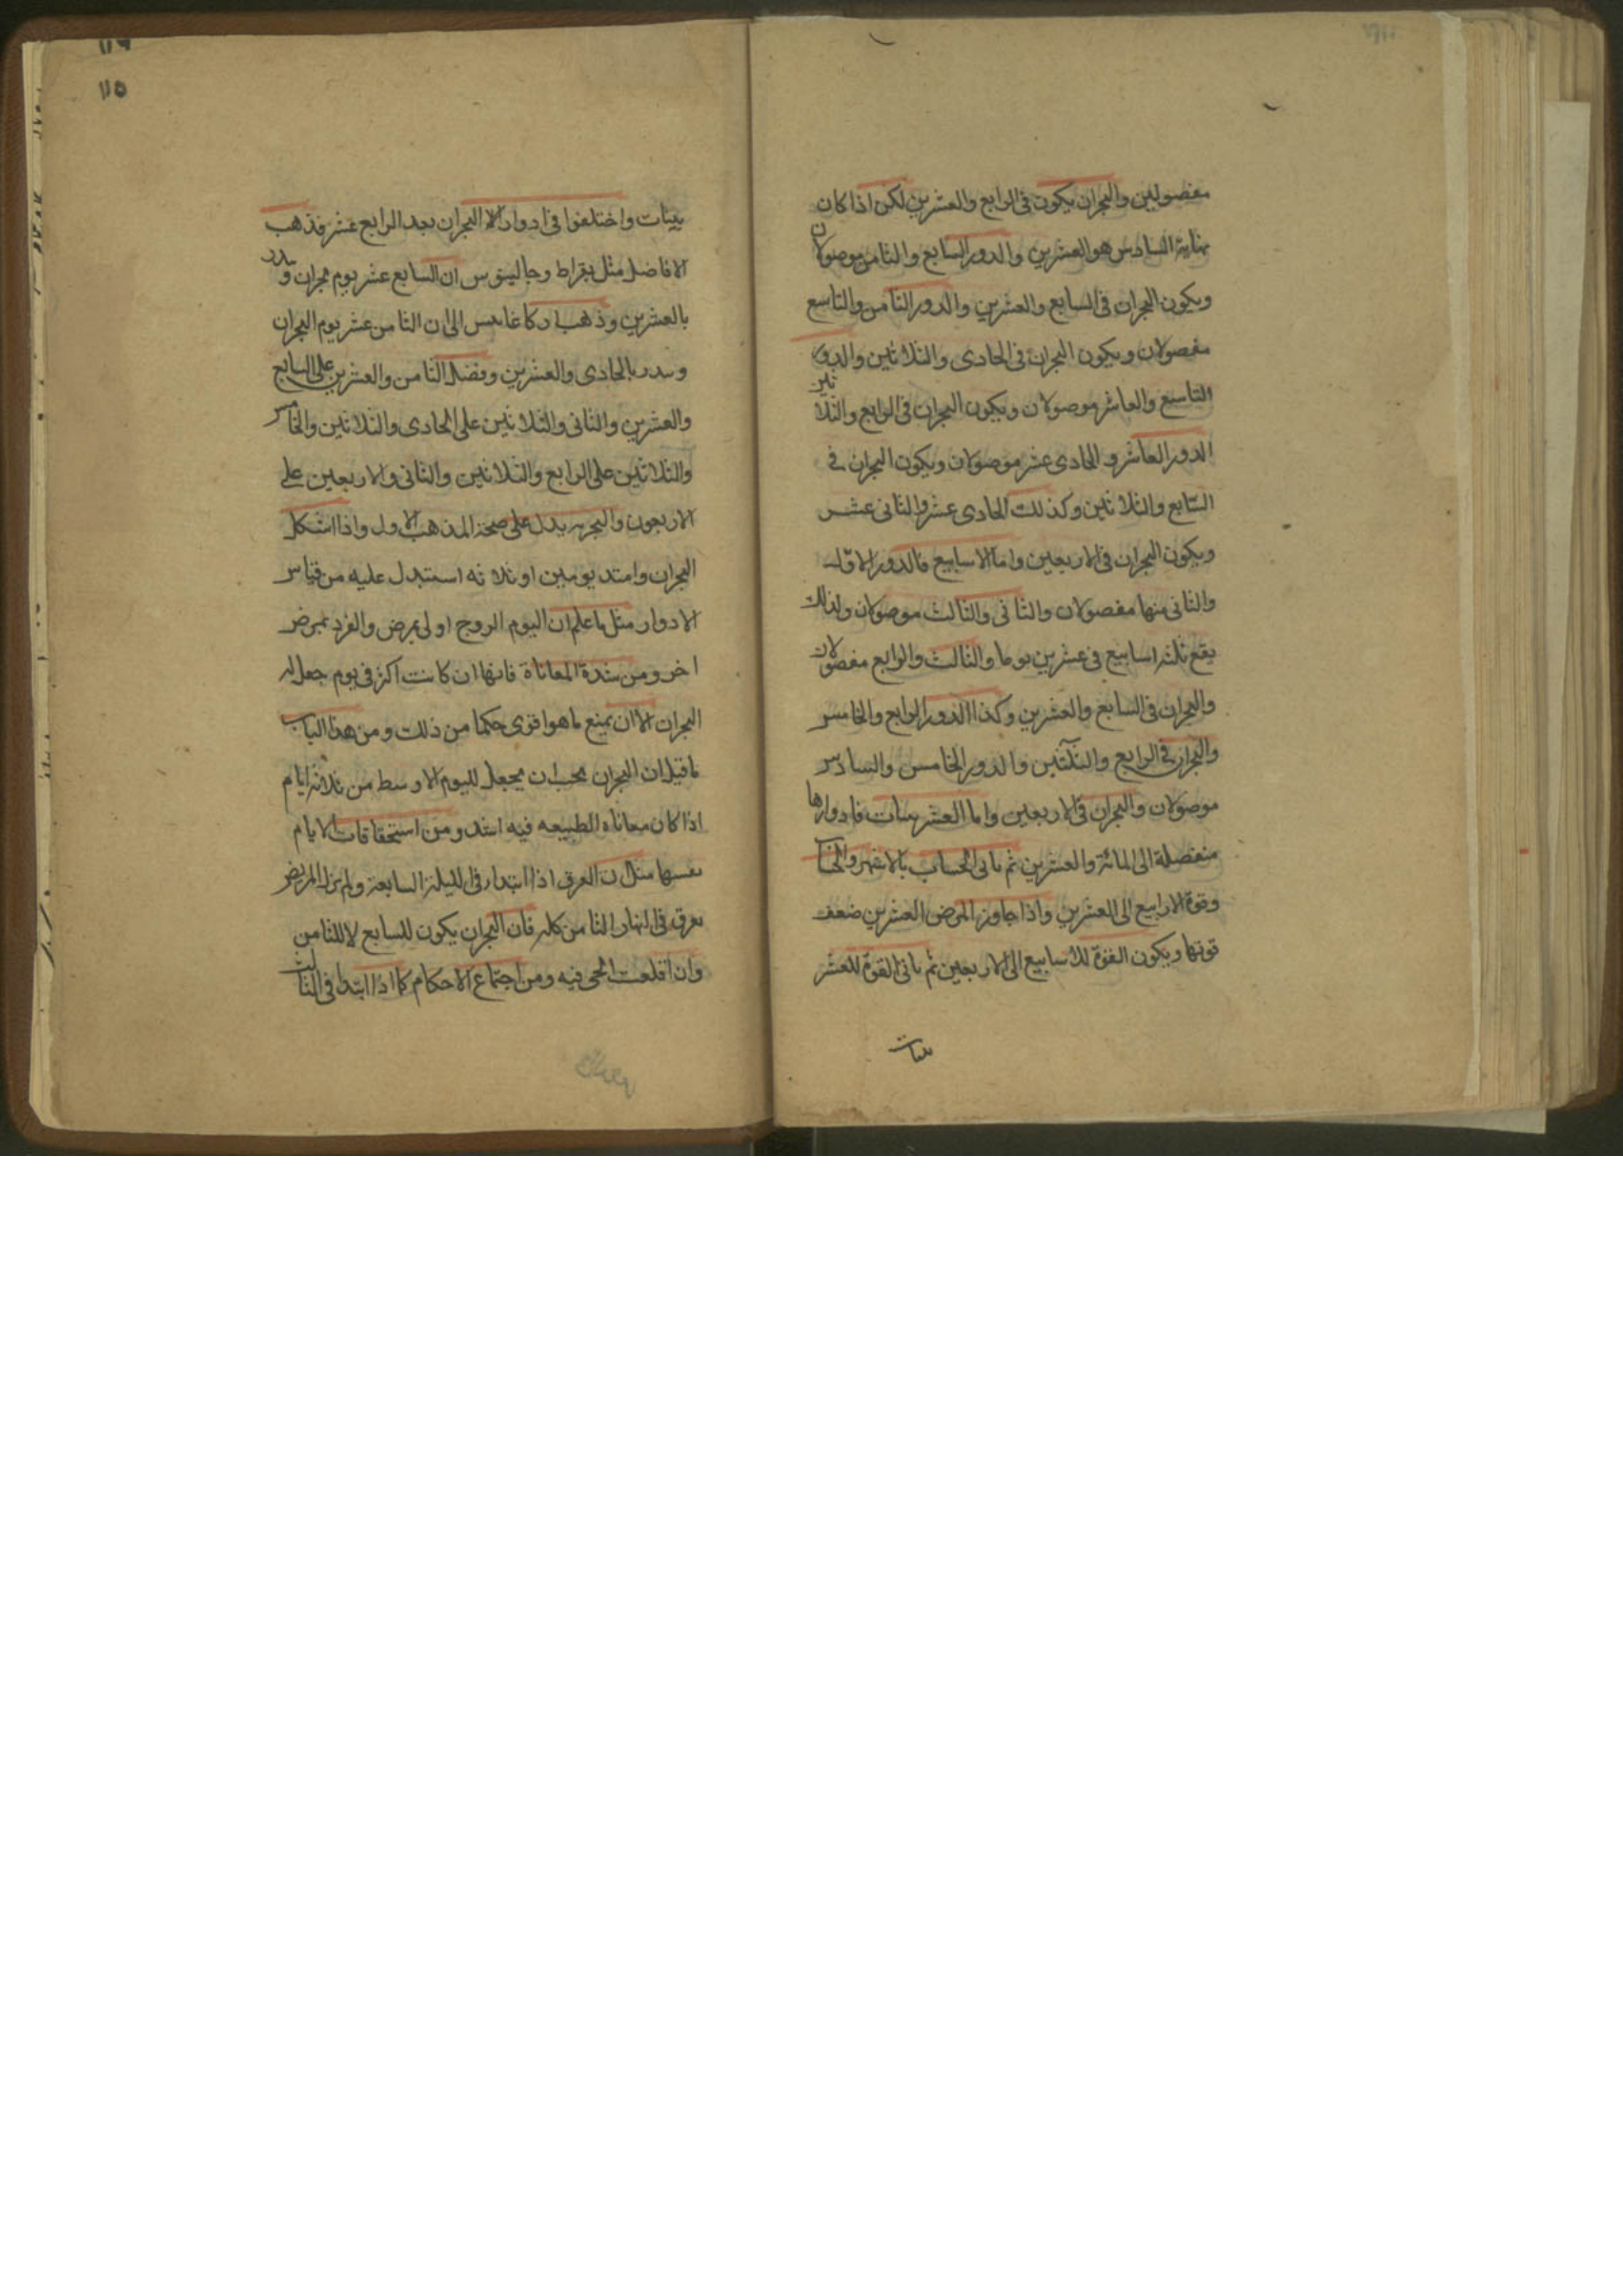 مفصولين والبحران يكون فى الرابع والعشرين لكن اذا كان
نهاية السادس هو العشرين والدور السابع والثامن موصولان
ويكون البحران فى السابع والعشرين والدور الثامن والتاسع
مفصولان ويكون البحران فى الحادى والثلاثين والدور
التاسع والعاشر موصولان ويكون البحران فى الرابع والثلاثين
الدور العاشر والحادى عشر موصولان ويكون البحران فى
السابع والثلاثين وكذلك الحادى عشر والثانى عشر
ويكون البحران فى الاربعين واما الاسابيع فالدور الاول
والثانى منها مفصولان والثانى والثالث موصولان ولذلك
يقع ثلثة اسابيع فى عشرين يوما والثالث والرابع مفصولان
والبحران فى السابع والعشرين وكذا الدور الرابع والخامس
والبحران فى الرابع والثلثين والدور الخامس والسادس
موصولان والبحران فى الاربعين واما العشرينيات فادوارها
منفصلة الى المائة والعشرين ثم ياتى الحساب بالاشهر
وقوة الارابيع الى العشرين واذا جاوز المرض العشرين ضعف
قوتها ويكون القوة للاسابيع الى الاربعين ثم ياتى القوة للعشر
ينيات
١١٥
ينيات واختلفوا فى ادوار البحران بعد الرابع عشر فذهب
الافاضل مثل بقراط وجالينوس ان السابع عشر يوم بحران
بالعشرين وذهب اركاغانس الى ان الثامن عشر يوم البحران
بالحادى والعشرين وفضل الثامن والعشرين على السابع
والعشرين والثانى والثلاثين على الحادى والثلاثين والخامس
والثلاثين على الرابع والثلاثين والثانى والاربعين على
الاربعون والتجربه يدل على صحة المذهب الاول واذا اشكل
البحران وامتد يومين او ثلاثه استدل عليه من قياس
الادوار مثل ما علم ان اليوم الزوج اولى بمرض والفرد بمرض
اخر ومن شدة المعاناة فانها ان كانت اكثر فى يوم جعل له
البحران الا ان يمنع ما هو اقوى حكما من ذلك ومن هذا الباب
ما قيل ان البحران يجب ان يجعل لليوم الاوسط من ثلاثة ايام
اذا كان معاناه الطبيعه فيه اشد ومن استحقاقات الايام
نفسها مثل ان العرق اذا ابتدا فى الليلة السابعة ولم يزل المريض
يعرق فى النهار الثامن كله فان البحران يكون للسابع لا للثامن
وان اقلعت الحمى فيه ومن اجتماع الاحكام كما اذا ابتدا فى الثالث